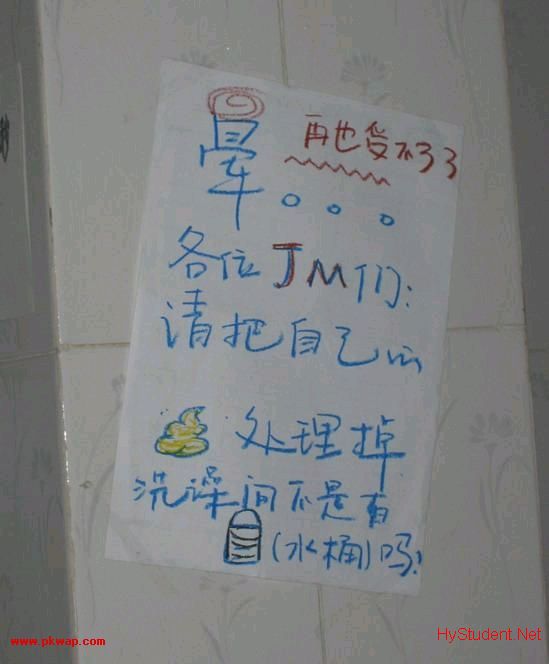 晕。。。
再也受不了了
各位JM们:
请把自己的
处理掉
洗澡间不是有
(水桶)吗!
www.pkwap.com
HyStudent.Net